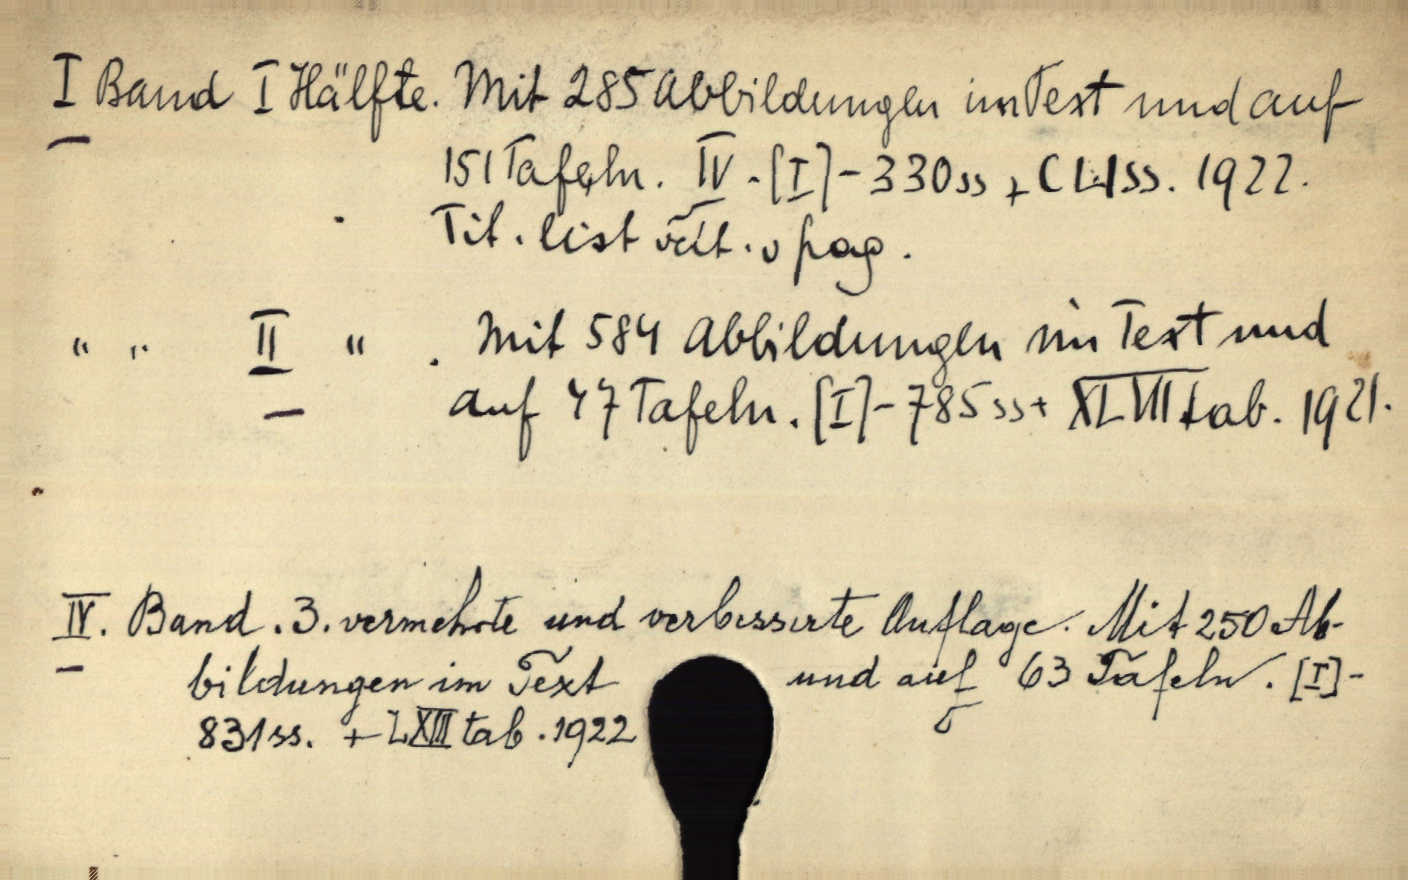 I Band I Hälfte. Mit 285 Abbildungen im Text und auf
151 Tafeln. IV.[I]-330ss + CLI ss. 1922.
Tit. list våit. v pag.
" " II " . Mit 584 Abbildungen im Text und
auf 47 Tafeln. [I]-785ss + XLVII tab. 1921.
IV. Band. 3. vermehrte und verbesserte Auflage. Mit 250 Ab-
bildungen im Text und auf 63 Tafeln. [I]-
831ss. + LXIII tab. 1922